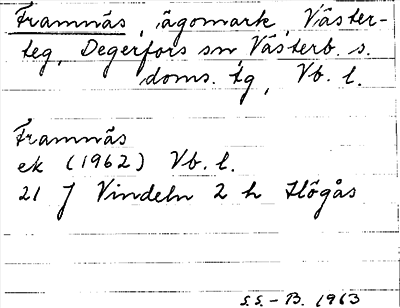 Framnäs, ägomark, Väster-
teg, Degerfors sn, Västerb. s.
doms. tg, Vb. l.
Framnäs
ek (1962) Vb. l.
21 J Vindeln 2 h Högås
S.S. - B. 1963